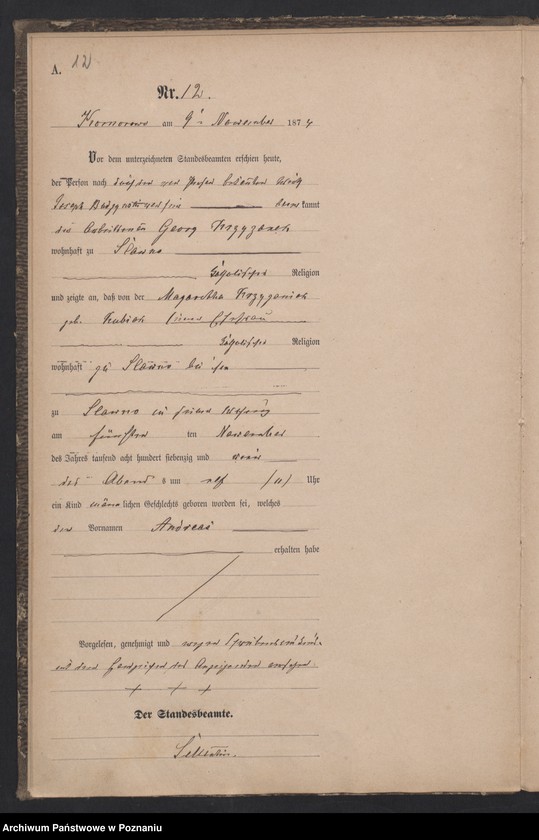 A. 12
Nr. 12.
am 9ten November 1874
Vor dem unterzeichneten Standesbeamten erschien heute,
der Person nach durch den
Joseph kannt
Georg Krzyzaniak
wohnhaft zu Slawno
Religion
und zeigte an, daß von der Magaretha Krzyzaniak
geb. Kubiak seiner Ehefrau
Religion
wohnhaft zu Slawno bei ihm
zu Slawno in seiner Wohnung
am fünften ten November
des Jahres tausend acht hundert siebenzig und vier
des Abend s um elf (11) Uhr
ein Kind männlichen Geschlechts geboren worden sei, welches
den Vornamen Andreas
erhalten habe
Vorgelesen, genehmigt und wegen
mit dem Handzeichen des Anzeigenden versehen
+ + +
Der Standesbeamte.
Archiwum Państwowe w Poznaniu